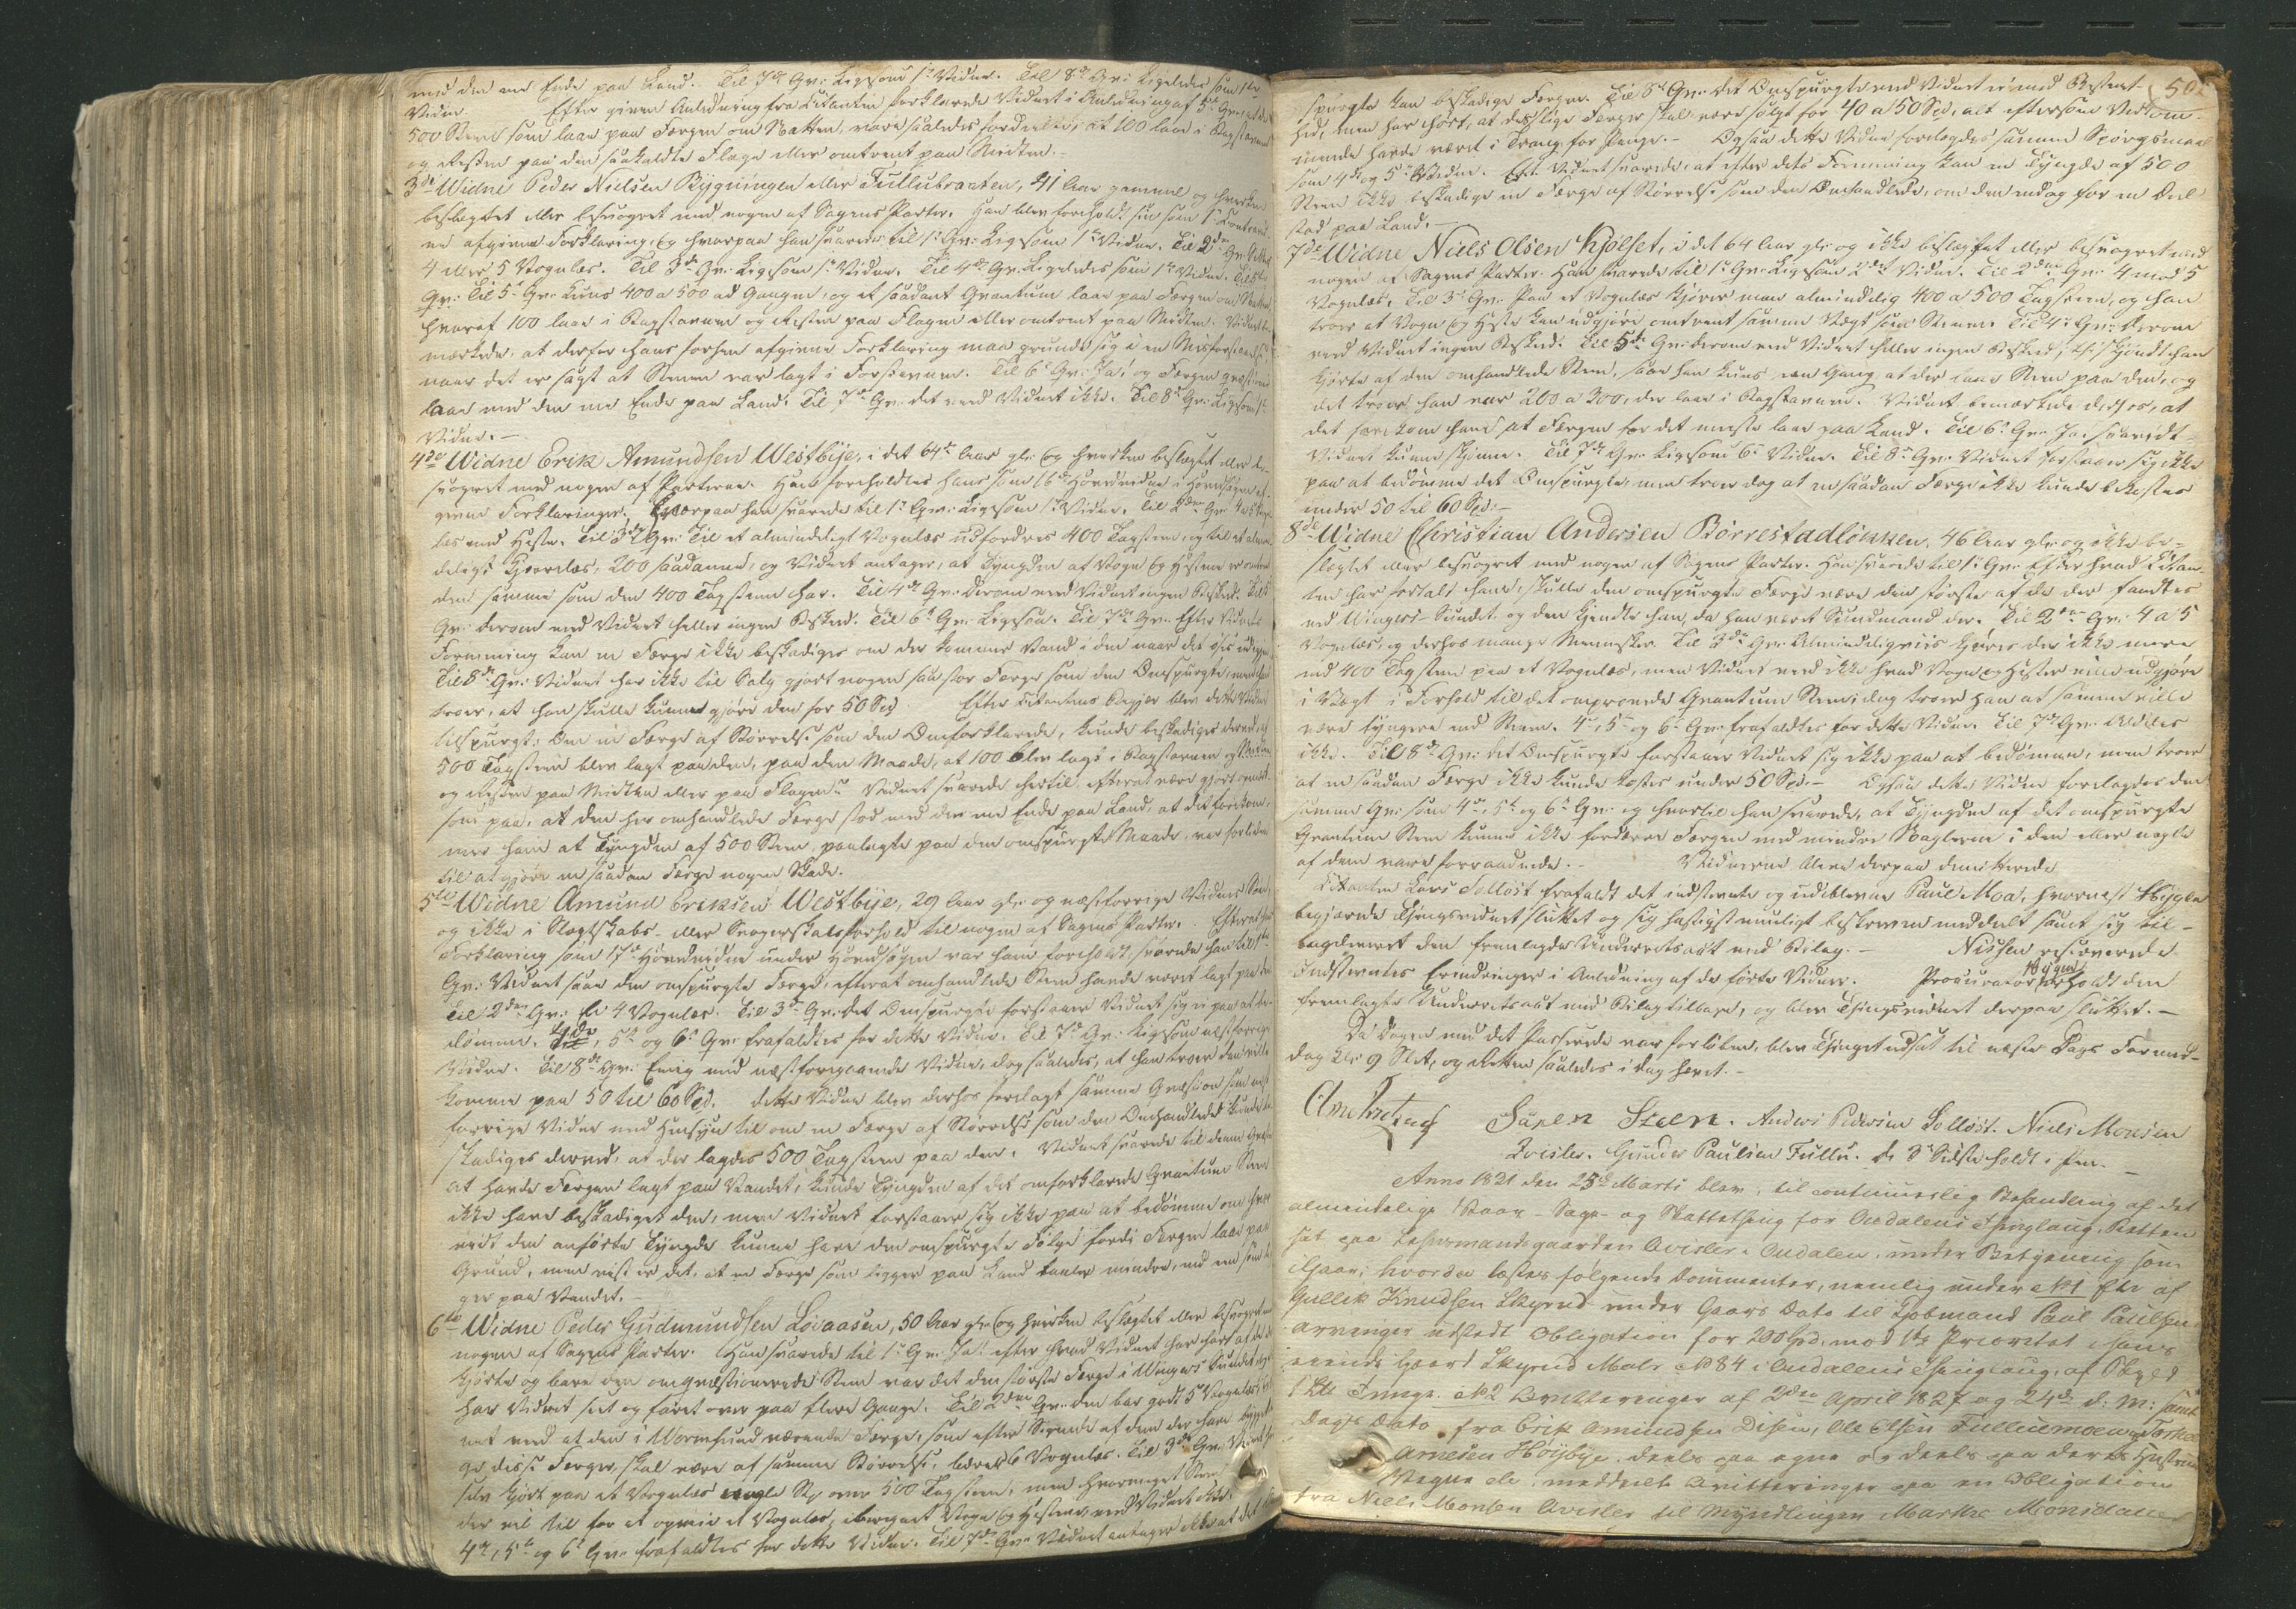 med den ene Ende paa Land. Til 7de Qv: Ligesom 1ste Vidne. Til 8de Qv: Ligeledes som 1ste
Vidne. Efter given Anledning fra Citanten forklarede Vidnet i Anledning af 5te Qv: at de
500 Steen som laae paa Færgen om Natten, vare saaledes fordeelte, at 100 laae i Bagstavnen
og Resten paa den saakaldte Flage eller omtrent paa Midten.
3die Widne Peder Nielsen Bygningen eller Fullubraaten, 41 Aar gammel og hverken
beslægtet eller besvogret med nogen af Sagens Parter. Han blev foreholdt sin som 1ste
afgivne Forklaring, og hvorpaa han svarede til 1ste Qv: Ligesom 1ste Vidne. Til 2den Qv:
4 eller 5 Vognlæs. Til 3die Qv: Ligesom 1ste Vidne. Til 4de Qv: Ligeledes som 1ste Vidne.
Qv: Til 5te Qv: Kuns 400 a 500 ad Gangen, og et saadant Qvantum laae paa Færgen om Natten
hvoraf 100 laae i Bagstavnen og Resten paa Flagen eller omtrent paa Midten. Vidnet be-
mærkede, at derfor hans forhen afgivne Forklaring maa grunde sig i en Misforstaaelse
naar det er sagt at Stenen var lagt i Forstavnen. Til 6te Qv: Ja, og Færgen
laae med den ene Ende paa Land. Til 7de Qv: det veed Vidnet ikke. Til 8de Qv: Ligesom 1ste
Vidne.
4de Widne Erik Amundsen Westbye, i det 64de Aar gl: og hverken beslægtet eller be-
svogret med nogen af Parterne. Ham foreholdtes hans som 16de Hovedvidne i Hovedsagen af-
givne Forklaringer, hvorpaa han svarede til 1ste Qv: Ligesom 1ste Vidne. Til 2den Qv: 4 a 5 Vogn-
læs med Heste. Til 3die Qv: Til et almindeligt Vognlæs udfordres 400 Tagsteen, og til et almin-
deligt Kjærrelæs, 200 saadanne, og Vidnet antager, at Tyngden af Vogn og Hestene er omtrent
den samme som den 400 Tagsteen har. Til 4de Qv: Derom veed Vidnet ingen Besked. Til 5te
Qv: derom veed Vidnet heller ingen Besked. Til 6te Qv: Ligesaa. Til 7de Qv: Efter Vidnets
Formening kan en Færge ikke beskadiges om der kommer Vand i den naar det øses
Til 8de Qv: Vidnet har ikke til Salg gjort nogen saa stor Færge som den Omspurgte, men
troer, at han skulde kunne gjøre den for 50 Spd. Efter Citantens Begjær blev dette Vidne
tilspurgt: Om en Færge af Størrelse som den Omforklarede, kunde beskadiges derved, at
500 Tagsteen blev lagt paa den, paa den Maade, at 100 blev lagt i Bagstavnen
og Resten paa Midten eller paa Flagen? Vidnet svarede hertil, efterat være gjort opmærk-
som paa, at den her omhandlede Færge stod med den ene Ende paa Land, at det forekom-
mer ham at Tyngden af 500 Steen, paalagte paa den omspurgte Maade, var for liden
til at gjøre en saadan Færge nogen Skade.
5te Widne Amund Eriksen Westbye, 29 Aar gl: og næstforrige Vidnes Søn
og ikke i Slægtskabs- eller Svogerskabsforhold til nogen af Sagens Parter. Efterat hans
Forklaring som 17de Hovedvidne under Hovedsagen var ham foreholdt, svarede han til 1ste
Qv: Vidnet saae den omspurgte Færge, efterat omhandlede Steen havde været lagt paa den
Til 2den Qv: En 4 Vognlæs. Til 3die Qv: det Omspurgte forstaaer Vidnet sig ei paa at be-
dømme. 4de, 5te og 6te Qv: frafaldtes for dette Vidne. Til 7de Qv: Ligesom næstforrige
Vidne. Til 8de Qv: Enig med næstforegaaende Vidne, dog saaledes, at han troer den vilde
komme paa 50 til 60 Spd. dette Vidne blev derhos forelagt samme Qvæstion som næst-
forrige Vidne med Hensyn til om en Færge af Størrelse som den Omhandlede kunde be-
skadiges derved, at der lagdes 500 Tagsteen paa den. Vidnet svarede til denne
at havde Færgen lagt paa Vandet, kunde Tyngden af det omforklarede Qvantum Steen
ikke have beskadiget den, men Vidnet forstaaer sig ikke paa at bedømme om hvor-
vidt den anførte Tyngde kunne have den omspurgte Følge fordi Færgen laae paa
Grund, men vist er det, at en Færge som ligger paa Land taaler mindre, end en som lig-
ger paa Vandet.
6te Widne Peder Gudmundsen Løvaasen, 50 Aar gl: og hverken beslægtet eller besvogret med
nogen af Sagens Parter. Han svarede til 1ste Qv: Ja! efter hvad Vidnet har hørt af
kjørte og bare den omqvæstionerede Steen var det den største Færge i Wingers Sundet og
har Vidnet seet og faret over paa flere Gange. Til 2den Qv: den bar godt 5 Vognlæs
ved at den i Wormsund værende Færge, som efter Sigende af dem der have bygget
disse Færger, skal være af samme Størrelse, bærer 6 Vognlæs. Til 3die Qv: Vidnet har
selv kjørt paa et Vognlæs nogle Stk over 500 Tagsteen, men hvormeget Steen
der vel til for at opveie et Vognlæs, iberegnet Vogn og Hestene, veed Vidnet ikke.
4de, 5te og 6te Qv: frafaldtes for dette Vidne. Til 7de Qv: Vidnet antager ikke at det
501
spurgte kan beskadige Færgen. Til 8de Qv: det Omspurgte veed Vidnet ei med Bestemt-
hed, men har hørt, at deslige Færger skal være solgt for 40 a 50 Spd, alt eftersom Vedkom-
mende havde været i Trang for Penge. Ogsaa dette Vidne forelagdes samme Spørgsmaal
som 4de og 5te Vidne. Vidnet svarede, at efter dets Formening kan en Tyngde af 500
Steen ikke beskadige en Færge af Størrelse som den Omhandlede, om den endog for en Deel
stod paa Land.
7de Widne Niels Olsen Kjølset, i det 64 Aar gl: og ikke beslægtet eller besvogret med
nogen af Sagens Parter. Han svarede til 1ste Qv: Ligesom 2det Vidne. Til 2den Qv: 4 med 5
Vognlæs. Til 3die Qv: Paa et Vognlæs kjøres man almindelig 400 a 500 Tagsteen, og han
troer at Vogn og Heste kan udgjøre omtrent samme Vægt som Stenen. Til 4de Qv: derom
veed Vidnet ingen Besked. Til 5te Qv: derom veed Vidnet heller ingen Besked, thi skjøndt han
kjørte af den omhandlede Steen, saae han kuns een Gang at der laae Steen paa den, og
det troer han var 200 a 300, der laae i Bagstavnen. Vidnet bemærkede derhos, at
det forekom ham at Færgen for det meste laae paa Land. Til 6te Qv: Ja, saavidt
Vidnet kunne skjønne. Til 7de Qv: Ligesom 6te Vidne. Til 8de Qv: Vidnet forstaaer sig ikke
paa at bedømme det Omspurgte, men troer dog at en saadan Færge ikke kunde bekostes
under 50 til 60 Spd.
8de Widne Christian Andersen Børrestadløkken, 46 Aar gl: og ikke be-
slægtet eller besvogret med nogen af Sagens Parter. Han svarede til 1ste Qv: Efter hvad Citan-
ten har fortalt ham, skulle den omspurgte Færge være den største af de der fandtes
ved Wingers-Sundet og den kjendte han, da han været Sundmand der. Til 2den Qv: 4 a 5
Vognlæs, og derhos mange Mennesker. Til 3die Qv: Almindeligviis kjøres der ikke mere
end 400 Tagsteen paa et Vognlæs, men Vidnet veed ikke hvad Vogn og Hester ville udgjøre
i Vægt i Forhold til det ommeldte Qvantum Steen, dog troer han at samme ville
være tyngere end Steen. 4de, 5te og 6te Qv: frafaldtes for dette Vidne. Til 7de Qv: Aldeles
ikke. Til 8de Qv: det Omspurgte forstaaer Vidnet sig ikke paa at bedømme, men troer
at en saadan Færge ikke kunde kostes under 50 Spd. Ogsaa dette Vidne forelagdes den
samme Qv: som 4de, 5te og 6te Qv: og hvortil han svarede, at Tyngden af det omspurgte
Qvantum Steen kunne ikke fordærve Færgen med mindre Naglerne i den eller nogle
af dem vare forraadnede. Vidnerne bleve derpaa demitterede
Citanten Lars Solløst frafaldt det indstevnte og udeblevne Paul Moa, hvornest Hygen
begjærede Thingsvidnet sluttet og sig hastigst mueligt beskreven meddelt samt sig til-
bageleveret den fremlagde Underretsact med Bilag. Nissen reserverede
Indstevntes Erindringer i Anledning af de førte Vidner. Procurator Hygen forholdt den
fremlagte Underretsact med Bilag tilbage, og blev Thingsvidnet derpaa sluttet.
Da Dagen med det Passerede var forløben, blev Thinget udsat til næste Dags Formid-
dag Kl: 9 Slet, og Retten saaledes i Dag hævet.
Søren Steen. Anders Pedersen Solløst. Niels Monsen
Ovisler. Gunder Paulsen Fullu. de 3 Sidste holdt i Pen.
Anno 1831 den 25de Marts blev, til continuerlig Behandling af det
almindelige Vaar-Sage- og Skattething for Oudalens Thinglaug, Retten
sat paa Lehnsmandsgaarden Ovisler i Oudalen, under Betjening som
igaar, hvorda læstes følgende Documenter, nemlig under No 1 En af
Gullik Knudsen Skyrud under Gaars Dato til Kjøbmand Paul Paulsens
Arvinger udstedt Obligation for 200 Spd. mod 1ste Prioritet i hans
eiende Gaard Skyrud Matr. No 84 i Oudalens Thinglaug, af Skyld
No 2 Qvitteringer af 2den April 1827 og 24de d: M: samt
Dags Dato fra Erik Amundsen Disen, Ole Olsen Fulluemoen og Torkel
Arnesen Høybye, deels paa egne og deels paa deres Hustruers
Vegne meddeelte Qvitteringer paa en Obligation
fra Niels Monsen Ovisler til Myndlingen Marthe Monsdatter